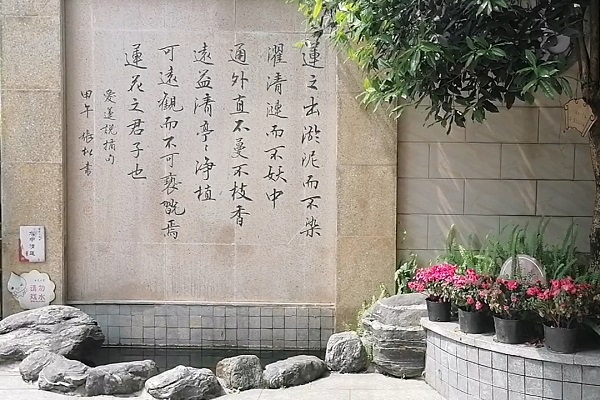 蓮之出淤泥而不染
濯清漣而不妖中
通外直不蔓不枝香
遠益清亭〻淨植
可遠觀而不可褻翫焉
蓮花之君子也
愛蓮說摘句
甲午